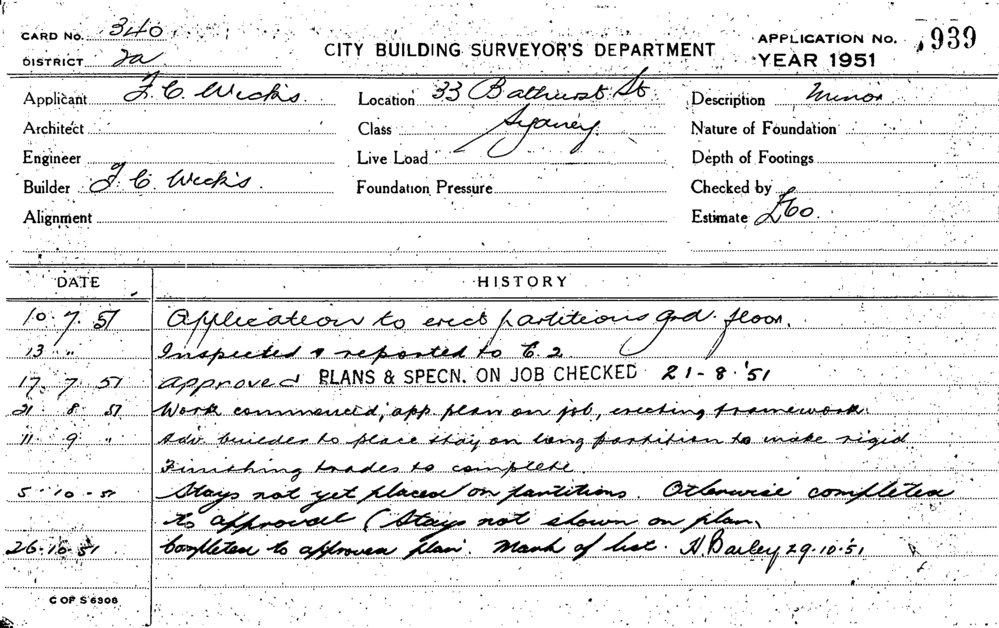 CARD No. 340
DISTRICT 2a
CITY BUILDING SURVEYOR'S DEPARTMENT
APPLICATION No. 939
YEAR 1951
Applicant F. C. Weeks.
Architect
Engineer
Builder F. C. Weeks.
Alignment
Location 33 Bathurst St
Class Sydney
Live Load
Foundation Pressure
Description Minor
Nature of Foundation
Depth of Footings
Checked by
Estimate £60.
DATE HISTORY
10. 7. 51 Application to erect partitions grd. floor.
13 " Inspected & reported to E. 2
17. 7. 51 Approved PLANS & SPECN. ON JOB CHECKED 21-8-'51
21 8 51 Work commenced, app. plan on job, erecting framework.
11 9 " Adv. builder to place stay on long partition to make rigid
Finishing trades to complete.
5-10-51 Stays not yet placed on partitions. Otherwise completed
to approval (Stays not shown on plan,
26.10.51 Completed to approved plan. Mark of list. H. Barley 29.10.51
C OF S 6306